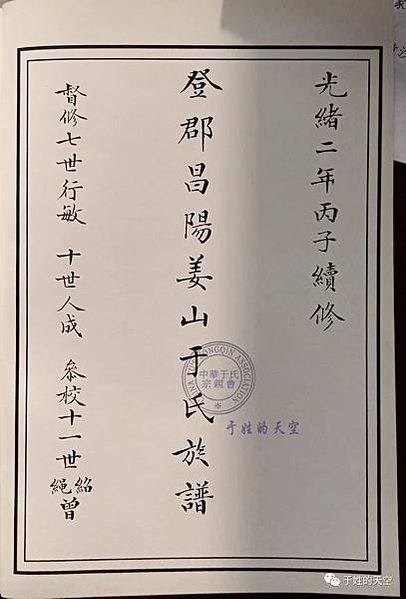 光緒二年丙子續修
登郡昌陽姜山于氏族譜
督修七世行敏 十世人成 叅校十一世 紹曾 繩
中華于氏
宗親會
于姓的天空
于姓的天空